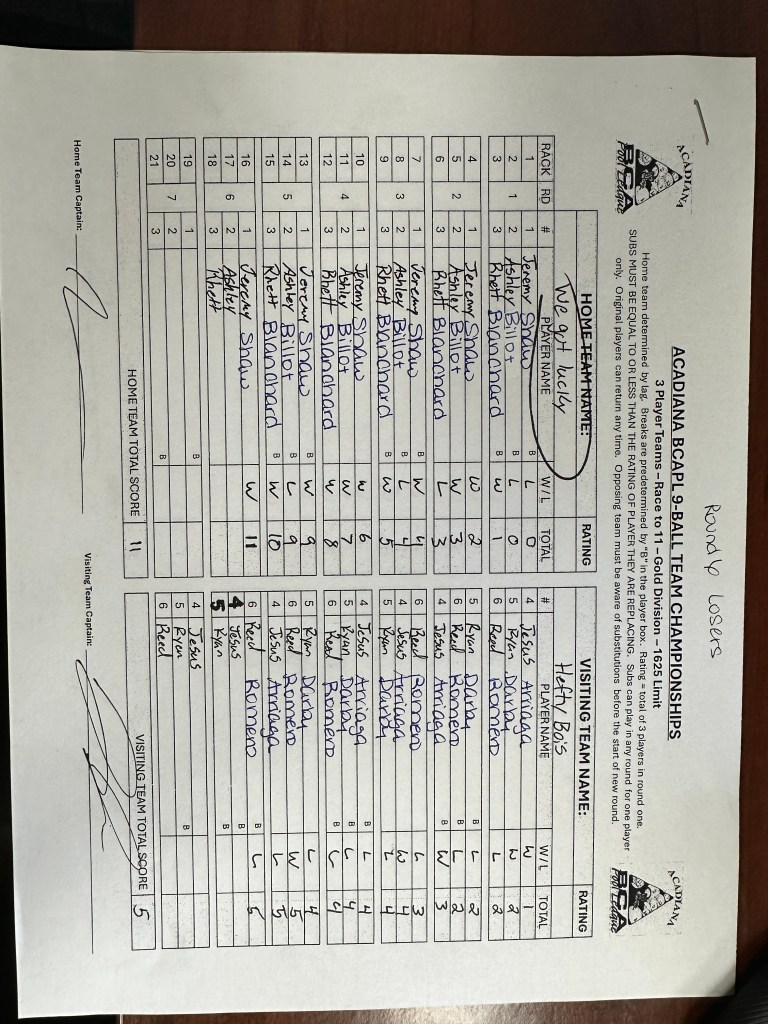 Round 4 Losers
ACADIANA BCA Pool League
ACADIANA BCAPL 9-BALL TEAM CHAMPIONSHIPS
ACADIANA BCA Pool League
3 Player Teams – Race to 11 – Gold Division – 1625 Limit
Home team determined by lag. Breaks are predetermined by "B" in the player box. Rating = total of 3 players in round one.
SUBS MUST BE EQUAL TO OR LESS THAN THE RATING OF PLAYER THEY ARE REPLACING. Subs can play in any round for one player
only. Original players can return any time. Opposing team must be aware of substitutions before the start of new round.
HOME TEAM NAME: RATING VISITING TEAM NAME: RATING
We got lucky Hefty Bois
RACK RD # PLAYER NAME W/L TOTAL # PLAYER NAME W/L TOTAL
1 1 Jeremy Shaw B L 0 4 Jesus Arriaga W 1
2 1 2 Ashley Billot B L 0 5 Ryan Darby W 2
3 3 Rhett Blanchard B W 1 6 Reed Romero L 2
4 1 Jeremy Shaw W 2 5 Ryan Darby B L 2
5 2 2 Ashley Billot W 3 6 Reed Romero B L 2
6 3 Rhett Blanchard L 3 4 Jesus Arriaga B W 3
7 1 Jeremy Shaw B W 4 6 Reed Romero L 3
8 3 2 Ashley Billot B L 4 4 Jesus Arriaga W 4
9 3 Rhett Blanchard B W 5 5 Ryan Darby L 4
10 1 Jeremy Shaw W 6 4 Jesus Arriaga B L 4
11 4 2 Ashley Billot W 7 5 Ryan Darby B L 4
12 3 Rhett Blanchard W 8 6 Reed Romero B L 4
13 1 Jeremy Shaw B W 9 5 Ryan Darby L 4
14 5 2 Ashley Billot B L 9 6 Reed Romero W 5
15 3 Rhett Blanchard B W 10 4 Jesus Arriaga L 5
16 1 Jeremy Shaw W 11 6 Reed Romero B L 5
17 6 2 Ashley 4 Jesus B
18 3 Rhett 5 Ryan B
19 1 B 4 Jesus
20 7 2 5 Ryan B
21 3 B 6 Reed
HOME TEAM TOTAL SCORE 11 VISITING TEAM TOTAL SCORE 5
Home Team Captain: Visiting Team Captain: